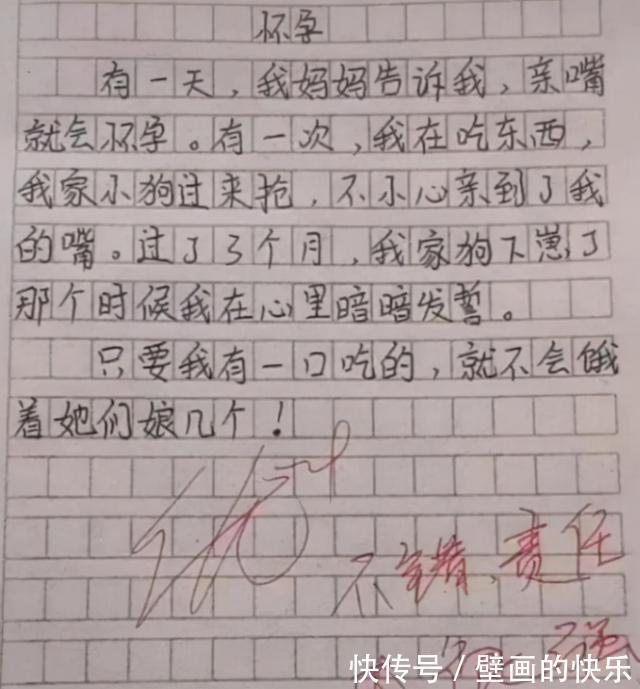 怀孕
有一天，我妈妈告诉我，亲嘴
就会怀孕。有一次，我在吃东西，
我家小狗过来抢，不小心亲到了我
的嘴。过了3个月，我家狗下崽了
那个时候我在心里暗暗发誓。
只要我有一口吃的，就不会饿
着她们娘几个！
不错，责任
强
快传号／壁画的快乐